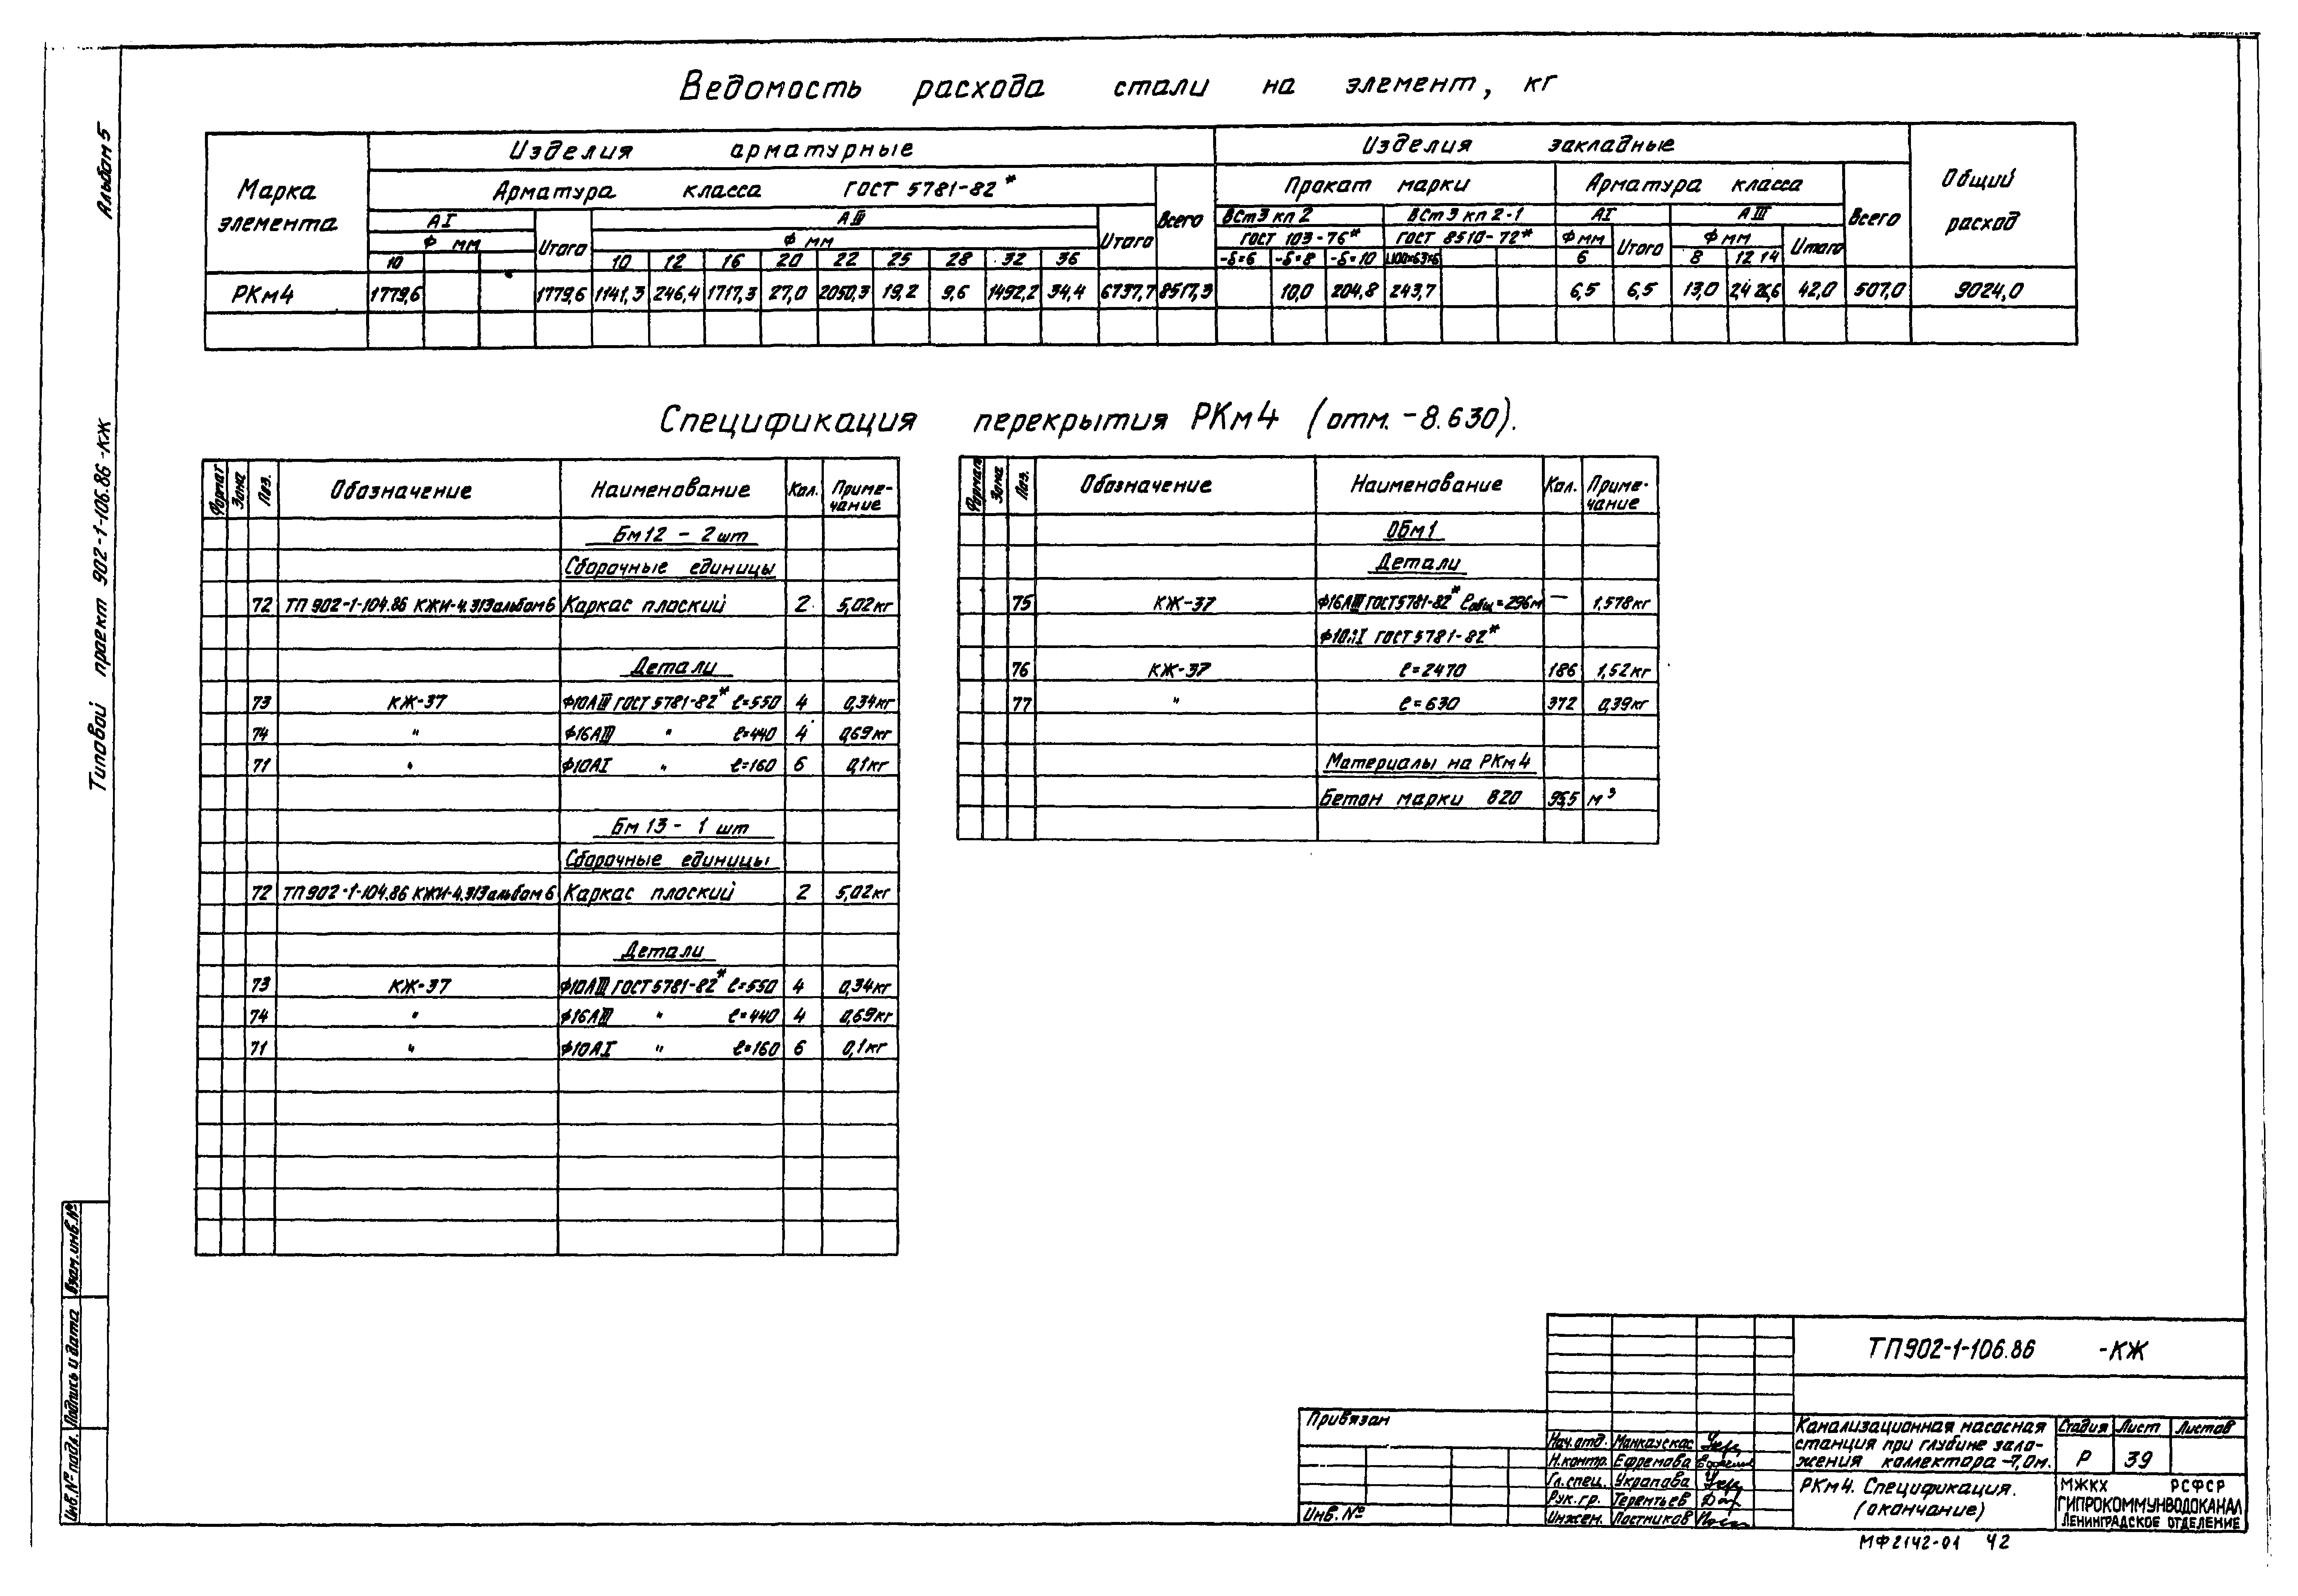 Ведомость расхода стали на элемент, кг
Марка элемента
Изделия арматурные
Изделия закладные
Общий расход
Арматура класса ГОСТ 5781-82*
Всего
Прокат марки
Арматура класса
Всего
АI
Итого
АIII
Итого
ВСт3 кп 2
ВСт3 кп 2-1
АI
Итого
АIII
Итого
Ф мм
Ф мм
ГОСТ 103-76*
ГОСТ 8510-72*
Ф мм
Ф мм
10 10 12 16 20 22 25 28 32 36 -δ=6 -δ=8 -δ=10 L100×63×6 6 8 12 14
РКм4 1779,6 1779,6 1141,3 246,4 1717,3 27,0 2050,3 19,2 9,6 1492,2 34,4 6737,7 8517,3 10,0 204,8 243,7 6,5 6,5 13,0 2,4 26,6 42,0 507,0 9024,0
Спецификация перекрытия РКм4 (отм. -8.630).
Формат Зона Поз. Обозначение Наименование Кол. Приме-
чание
Бм12 - 2 шт
Сборочные единицы
72 ТП 902-1-104.86 КЖИ-4.313 альбом 6 Каркас плоский 2 5,02 кг
Детали
73 КЖ-37 Ф10АIII ГОСТ 5781-82* ℓ=550 4 0,34 кг
74 " Ф16АIII " ℓ=440 4 0,69 кг
71 " Ф10АI " ℓ=160 6 0,1 кг
Бм 13 - 1 шт
Сборочные единицы
72 ТП 902-1-104.86 КЖИ-4.313 альбом 6 Каркас плоский 2 5,02 кг
Детали
73 КЖ-37 Ф10АIII ГОСТ 5781-82* ℓ=550 4 0,34 кг
74 " Ф16АIII " ℓ=440 4 0,69 кг
71 " Ф10АI " ℓ=160 6 0,1 кг
Формат Зона Поз. Обозначение Наименование Кол. Приме-
чание
ОБм1
Детали
75 КЖ-37 Ф16АIII ГОСТ 5781-82* ℓобщ=296м — 1,578 кг
Ф10АI ГОСТ 5781-82*
76 КЖ-37 ℓ=2470 186 1,52 кг
77 " ℓ=630 372 0,39 кг
Материалы на РКм4
Бетон марки В20 95,5 м³
Альбом 5
Типовой проект 902-1-106.86 -КЖ
Взам.инв.№
Подпись и дата
Инв.№ подл.
Привязан
Инв. №
ТП 902-1-106.86 -КЖ
Нач.отд. Манкаускас
Н.контр. Ефремова
Гл.спец. Украпова
Рук.гр. Терентьев
Инжен. Постников
Канализационная насосная
станция при глубине зало-
жения коллектора -7,0м.
Стадия Лист Листов
Р 39
РКм4. Спецификация.
(окончание)
МЖКХ РСФСР
ГИПРОКОММУНВОДОКАНАЛ
ЛЕНИНГРАДСКОЕ ОТДЕЛЕНИЕ
МФ 2142-01 42